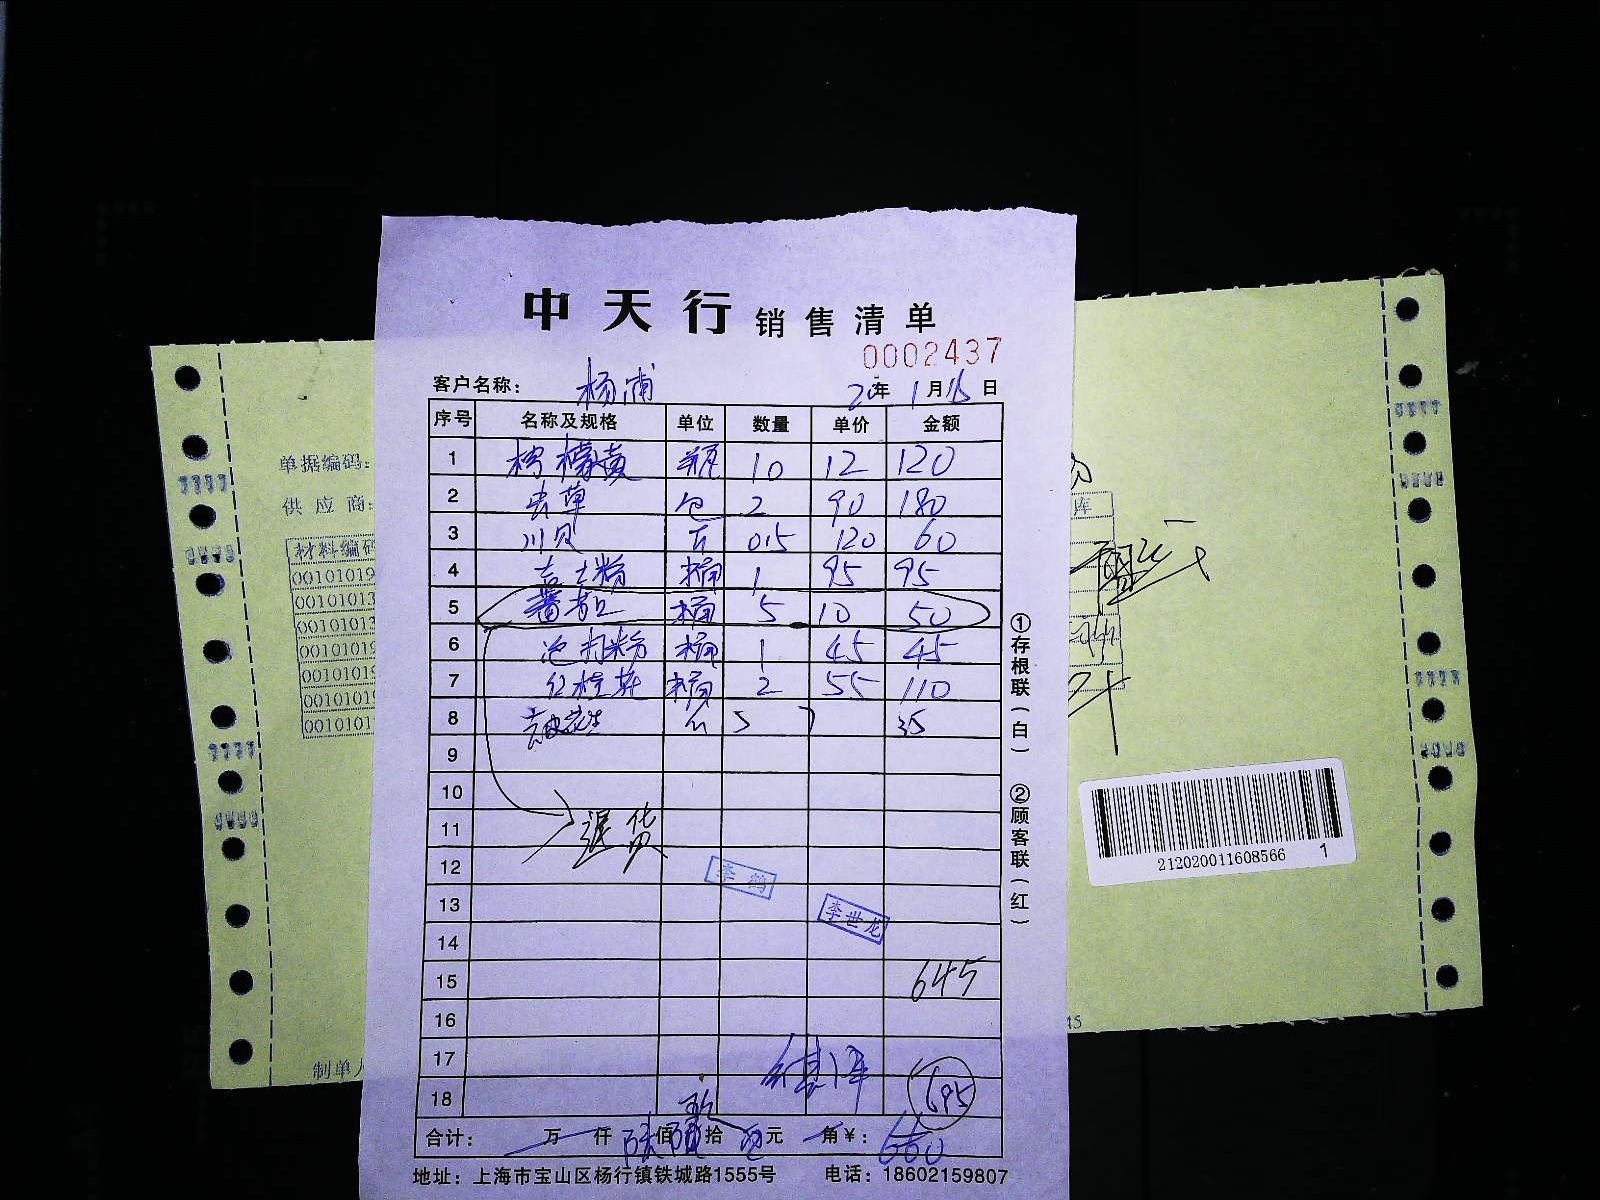 中天行 销售清单
0002437
客户名称： 杨浦 20年1月15日
序号 名称及规格 单位 数量 单价 金额
1 柠檬黄 瓶 10 12 120
2 虫草 包 2 90 180
3 川贝 斤 0.5 120 60
4 吉士粉 桶 1 95 95
5 桶 5 10 50
6 泡打粉 桶 1 45 45
7 桶 2 55 110
8 5 7 35
9
10
11 退货
12
13
14
15 645
16
17
18 695
李鹤
李世龙
合计： 万 仟 陆佰陆拾 元 角 ¥：660
地址：上海市宝山区杨行镇铁城路1555号 电话：18602159807
①存根联（白） ②顾客联（红）
单据编码：
供应商：
材料编码
00101019
00101013
00101013
00101019
00101019
00101019
00101017
制单人
库
212020011608566 1
45